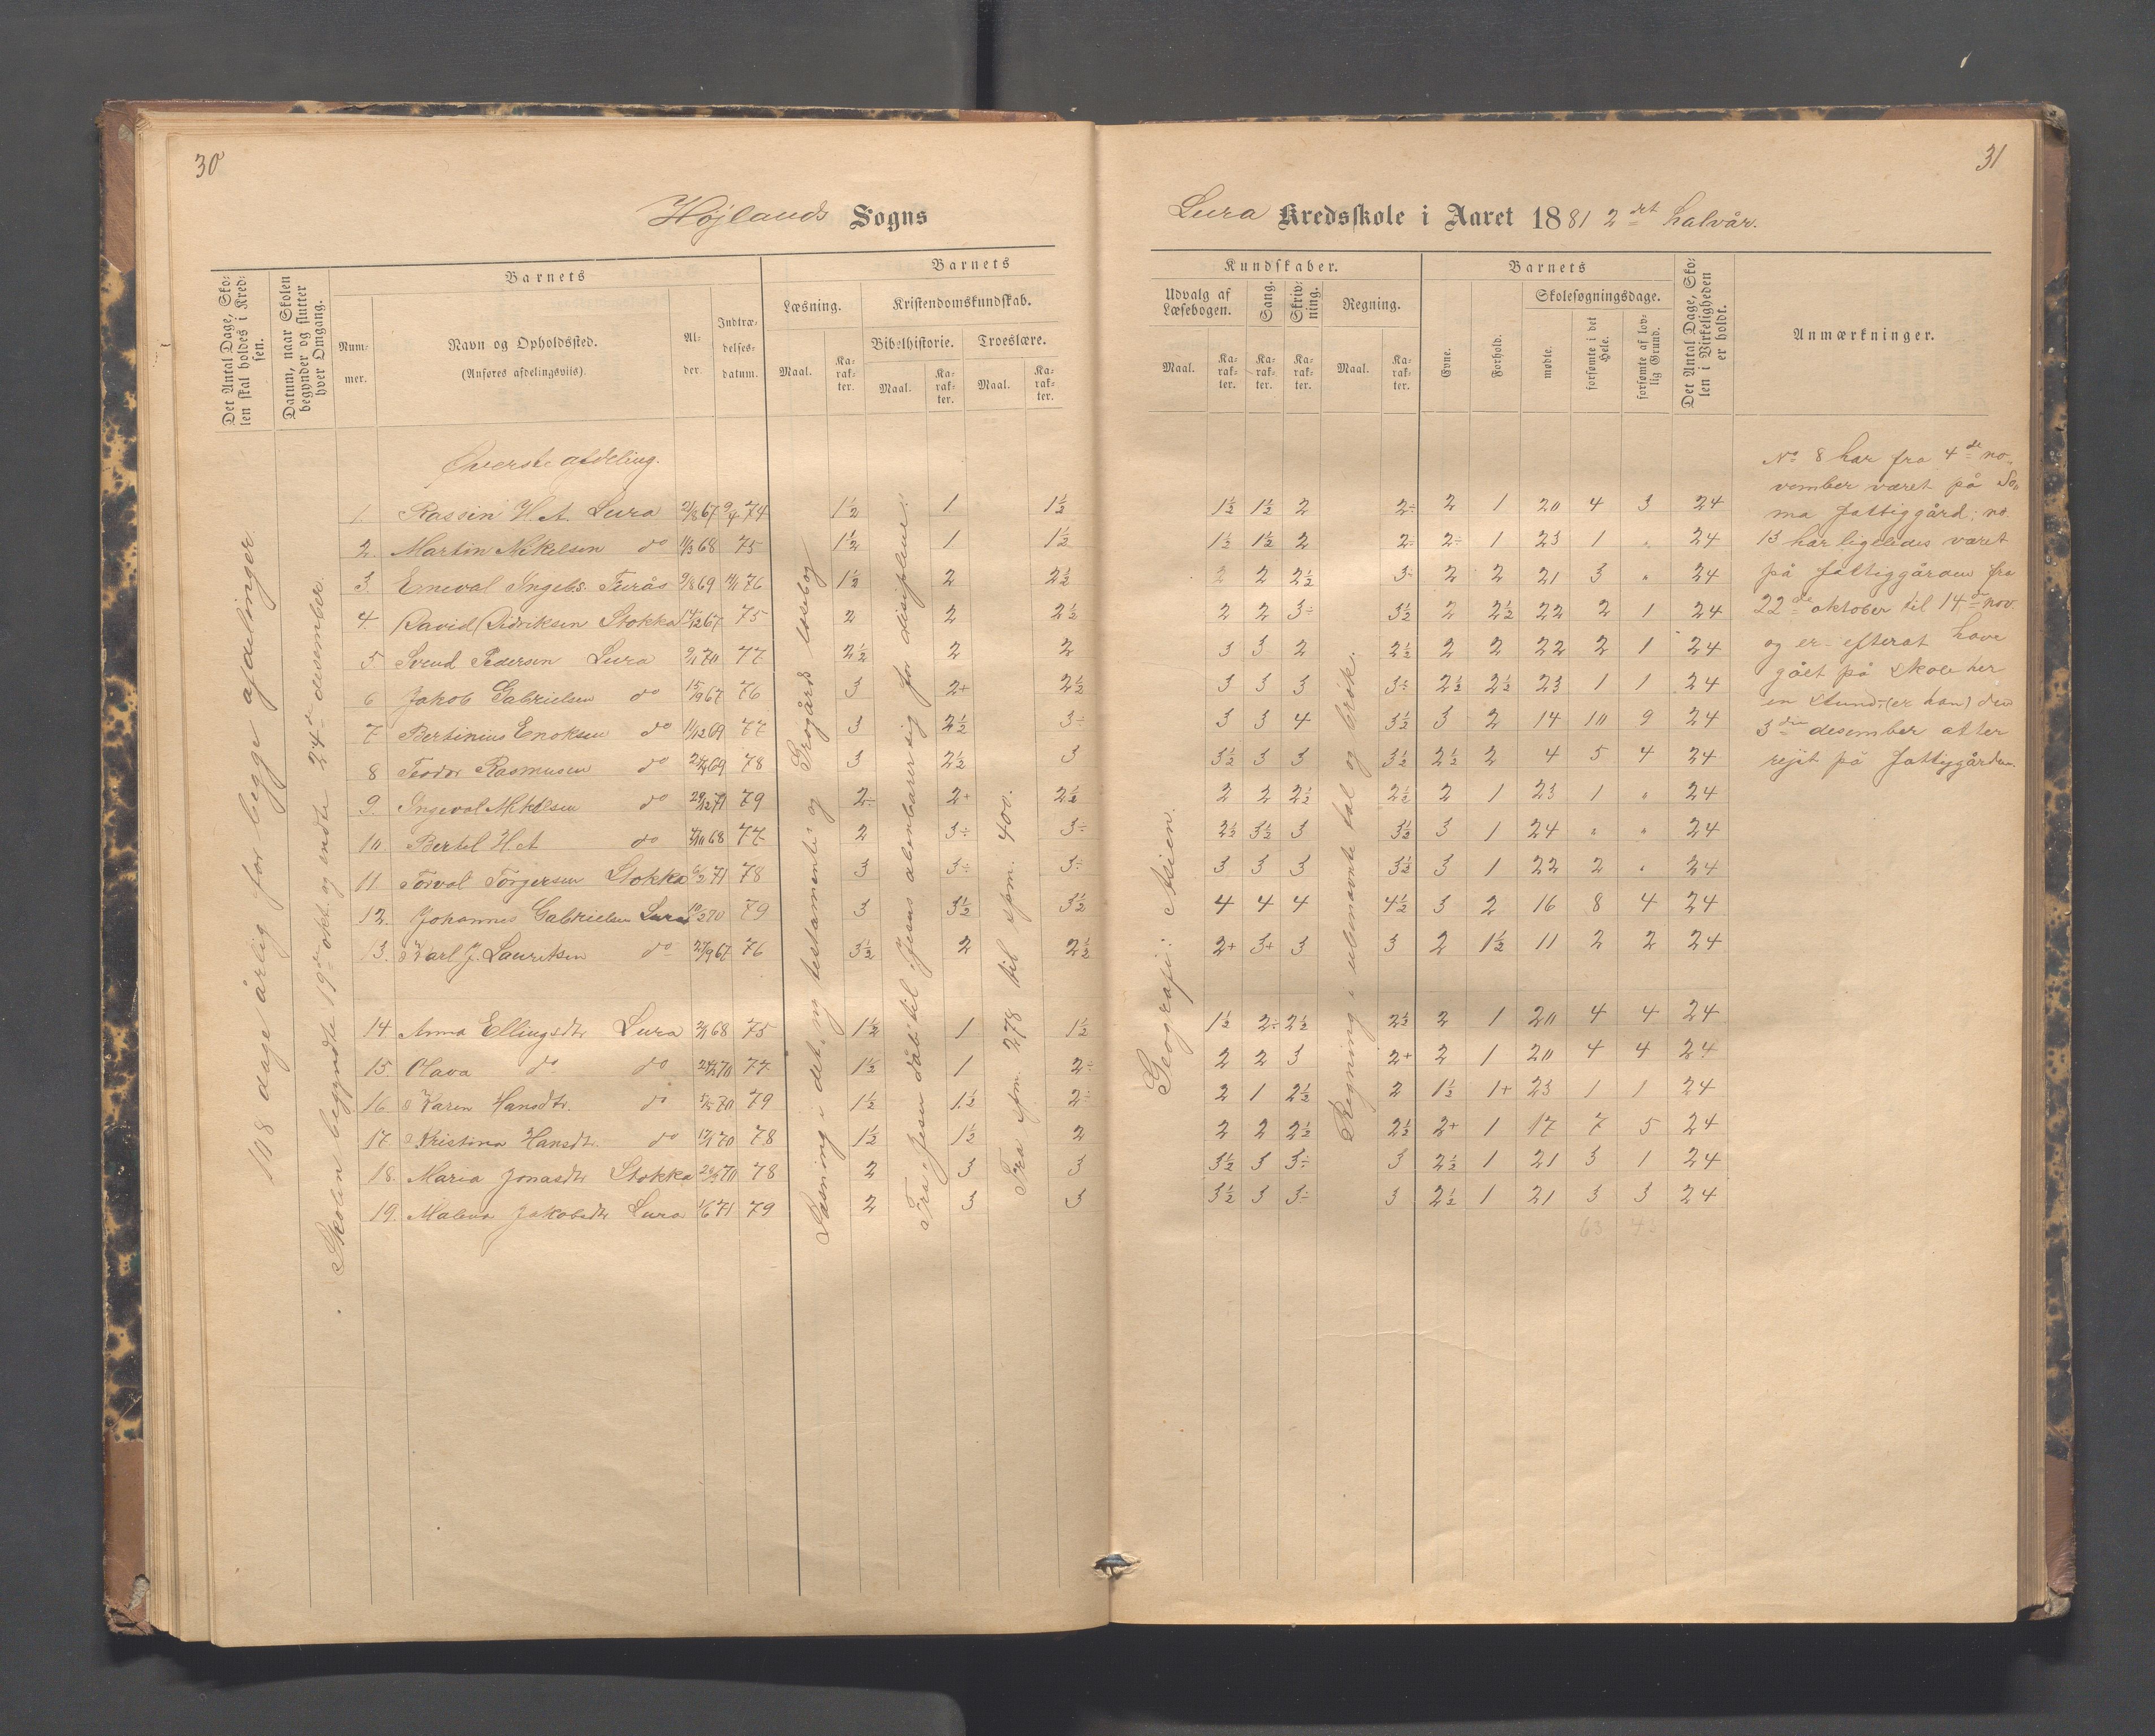 30
Højlands Sogns
Det Antal Dage, Sko-
len skal holdes i Kred-
sen.
Datum, naar Skolen
begynder og slutter
hver Omgang.
Barnets
Num-
mer.
Navn og Opholdssted.
(Anføres afdelingsviis).
Al-
der.
Indtræ-
delses-
datum.
Barnets
Læsning.
Kristendomskundskab.
Bibelhistorie.
Troeslære.
Maal.
Ka-
rak-
ter.
Maal.
Ka-
rak-
ter.
Maal.
Ka-
rak-
ter.
108 dage årlig for begge afdelinger.
Skolen begyndte 19de okt. og endte 24de desember.
Øverste afdeling.
1. Rassin H. A. Lura 21/8 67 9/4 74 1½ 1 1½
2. Martin Mikelsen do 11/3 68 75 1½ 1 1½
3. Emeval Ingebs. Furås 9/8 69 76 1½ 2 2½
4. David Didriksen Stokka 14/12 67 75 2 2 2½
5 Svend Pedersen Lura 70 77 2½ 2 2
6 Jakob Gabrielsen do 15/9 67 76 3 2+ 2½
7 Bertinius Enoksen do 11/12 69 77 3 2½ 3÷
8 Teodor Rasmusen do 69 78 3 2½ 3
9. Ingeval Mikelsen do 29/12 71 79 2÷ 2+ 2½
10. Bertel H. A do 68 77 2 3÷ 3÷
11. Torval Torgersen Stokka 71 78 3 3÷ 3÷
12. Johannes Gabrielsen Lura 70 79 3 3½ 3½
13. Karl J. Lauritsen do 27/9 67 76 3½ 2 2½
14 Anna Ellingsdtr Lura 68 75 1½ 1 1½
15 Olava do do 70 77 1½ 1 2÷
16 Karen Hansdtr. do 70 79 1½ 1½ 2÷
17. Kristina Hansdtr. do 70 78 1½ 1½ 2
18. Maria Jonasdtr Stokka 70 78 2 3 3
19. Malena Jakobsdtr Lura 1/6 71 79 2 3 3
Læsning i det ny testamente og Grogårds læsebog
Fra Jesu dåb til Jesus åbenbarer sig for disiplene.
Fra spm. 278 til spm. 400.
31
Lura Kredsskole i Aaret 1881 2det halvår.
Kundskaber.
Udvalg af
Læsebogen.
Sang.
Skriv-
ning.
Regning.
Maal.
Ka-
rak-
ter.
Ka-
rak-
ter.
Ka-
rak-
ter.
Maal.
Ka-
rak-
ter.
Barnets
Evne.
Forhold.
Skolesøgningsdage.
mødte.
forsømte i det
Hele.
forsømte af lov-
lig Grund.
Det Antal Dage, Sko-
len i Virkeligheden
er holdt.
Anmærkninger.
Geografi: Asien.
Regning i ubenævnte tal og brøk.
1½ 1½ 2 2÷ 2 1 20 4 3 24
1½ 1½ 2 2÷ 2÷ 1 23 1 " 24
2 2 2½ 3÷ 2 2 21 3 " 24
2 2 3÷ 3½ 2 2½ 22 2 1 24
3 3 2 2½ 2 2 22 2 1 24
3 3 3 3÷ 2½ 2½ 23 1 1 24
3 3 4 3½ 3 2 14 10 9 24
3½ 3 3 3½ 2½ 2 4 5 4 24
2 2 2½ 2½ 2 1 23 1 " 24
2½ 3½ 3 3½ 3 1 24 " " 24
3 3 3 3½ 3 1 22 2 " 24
4 4 4 4½ 3 2 16 8 4 24
2+ 3+ 3 3 2 1½ 11 2 2 24
1½ 2÷ 2½ 2½ 2 1 20 4 4 24
2 2 3 2+ 2 1 20 4 4 24
2 1 2½ 2 1½ 1+ 23 1 1 24
2 2 2½ 2½ 2+ 1 17 7 5 24
3½ 3 3÷ 3 2½ 1 21 3 1 24
3½ 3 3÷ 3 2½ 1 21 3 3 24
63
No 8 har fra 4de no-
vember været på So-
ma Fattiggård; no.
13 har ligeledes været
på fattiggården fra
22de oktober til 14de nov.
og er efterat have
gået på skole her
en stund (er han) den
3die desember atter
rejst på Fattiggården.